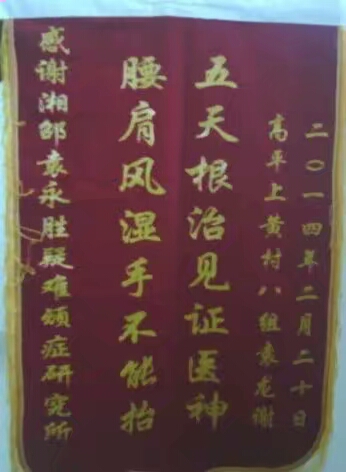 感谢湘邵袁永胜疑难顽症研究所
腰肩风湿手不能抬
五天根治见证医神
高平上黄村八组袁龙谢
二〇一四年二月二十日